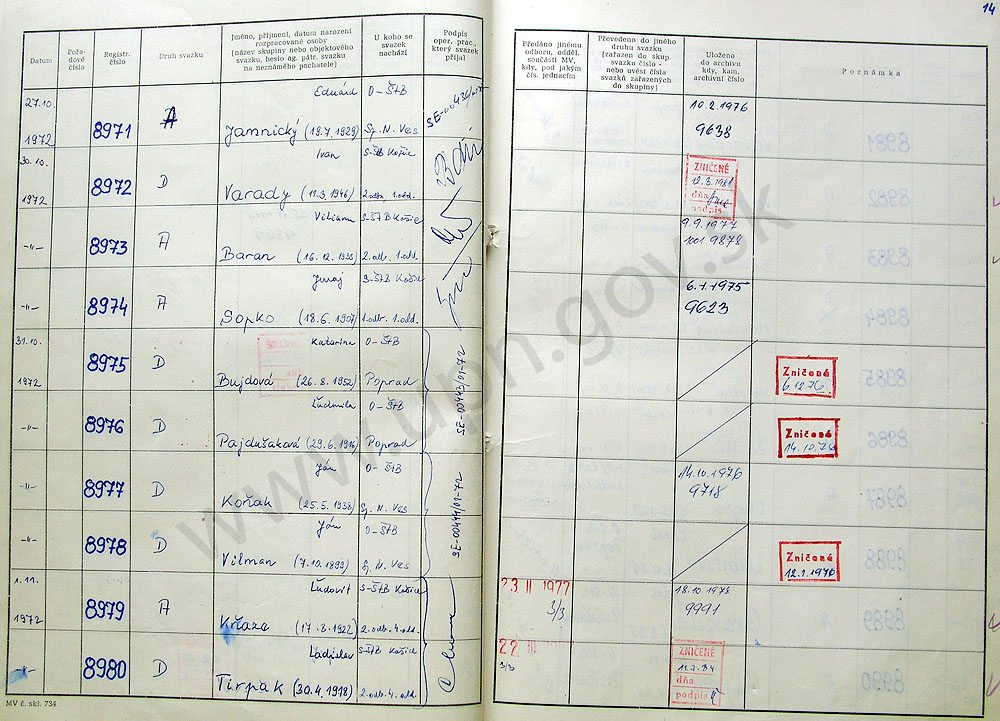 14
Datum
Pořadové číslo
Registr. číslo
Druh svazku
Jméno, příjmení, datum narození rozpracované osoby (název skupiny nebo objektového svazku, heslo ag. pátr. svazku na neznámého pachatele)
U koho se svazek nachází
Podpis oper. prac., který svazek přijal
Předáno jinému odboru, odděl. součásti MV, kdy, pod jakým čís. jednacím
Převedeno do jiného druhu svazku (zařazen do skup. svazku číslo - nebo uvést čísla svazků zařazených do skupiny)
Uloženo do archivu kdy, kam, archivní číslo
Poznámka
27.10. 1972 8971 A Eduard Jamnický (19.7.1929) O-ŠtB Sp. N. Ves
10.2.1976 9638
30.10. 1972 8972 D Ivan Varady (11.3.1946) S-ŠtB Košice 2.odb. 1.odd.
ZNIČENÉ dňa podpis
-"- 8973 A Viliam Baran (16.12.1935) S-ŠtB Košice 2.odb. 1.odd.
9.9.1977 9878
-"- 8974 A Juraj Sopko (18.6.1907) S-ŠtB Košice 1.odb. 1.odd.
6.1.1975 9623
31.10. 1972 8975 D Katarína Bujdová (26.8.1952) O-ŠtB Poprad SE-00443/01-72
Zničené 6.12.76
-"- 8976 D Ľudmila Pajdušaková (29.6.1916) O-ŠtB Poprad
Zničené 14.10.76
-"- 8977 D Ján Koňak (25.5.1938) O-ŠtB Sp. N. Ves SE-00444/01-72
14.10.1976 9718
-"- 8978 D Ján Vilman (7.10.1893) O-ŠtB Sp. N. Ves
Zničené 12.1.1976
1.11. 1972 8979 A Ľudovít Kňaze (17.8.1922) S-ŠtB Košice 2.odb. 4.odd.
23 II 1977 3/3
9991
-"- 8980 D Ladislav Tirpak (30.4.1918) S-ŠtB Košice 2.odb. 4.odd.
22. III 3/3
ZNIČENÉ dňa podpis
MV č. skl. 734
www.upn.gov.sk